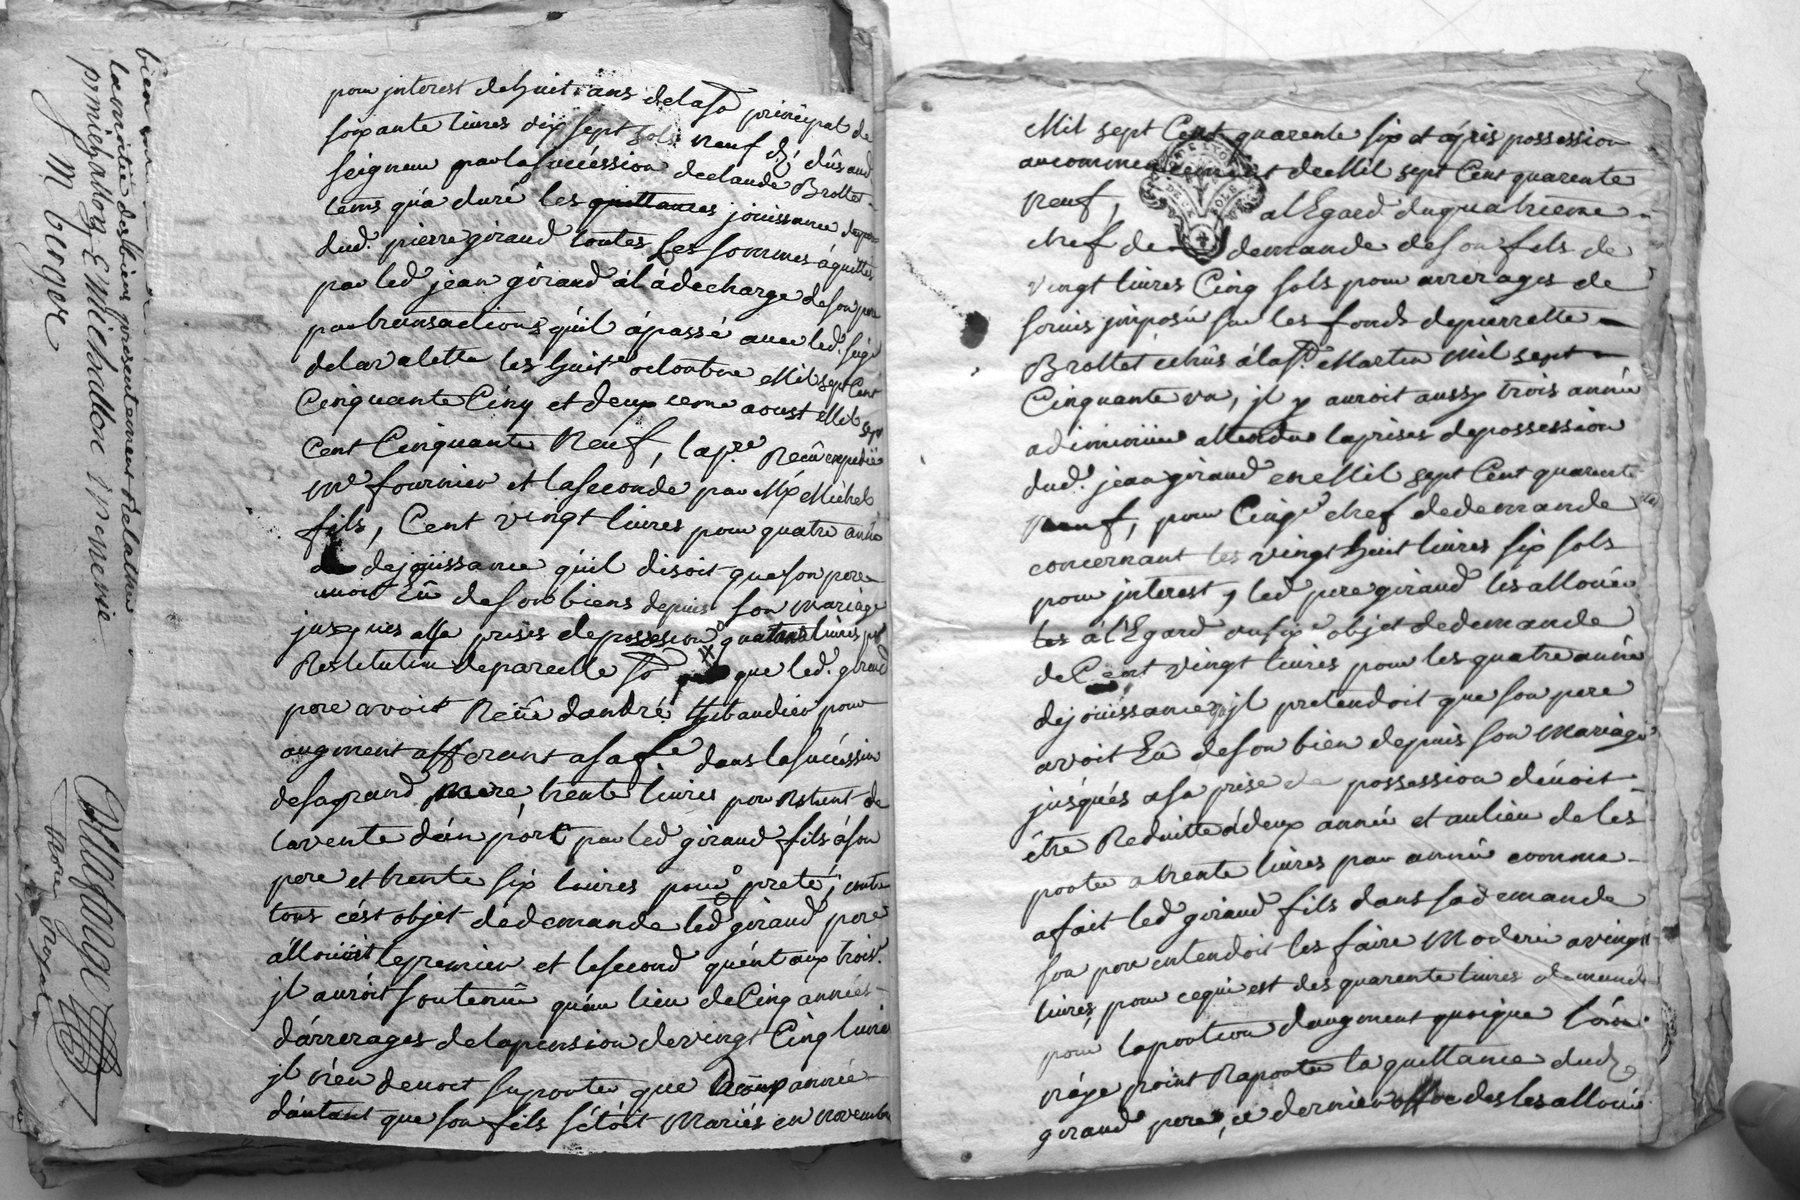 bien
la moitié des biens presentement Relathé
M berger
pour jnterest de huit ans de la so principal de
soixante livres dix sept sols neuf d. dûs aud
seigneur par la succession de claude Brottet
tems qu'a duré les quittances jouissance
dud. pierre giraud toutes les sommes áquittés
par led jean giraud á lá decharge de son pere
par transactions qu'il ápassé avec led. seigr
de la valette les huit octoubre Mil sept Cent
Cinquante Cinq et deuxieme aoust Mil sept
Cent Cinquante Neuf, la pre Reçûe
Me fournier et la seconde par Me Michel
fils, Cent vingt livres pour quatre année
de jouissance qu'il disoit que son pere
avoit Eû de son biens depuis son mariage
jusques asa prises de possession quatre livres pr
Restitution de pareille so que led. giraud
pere avoit Reçûe dandré thibaudier pour
augment afferant a sa fe dans la succéssion
de sa grand mere, trente livres pour Restant de
la vente dún pórt par led giraud fils á son
pere et trente six livres pour preté, contre
tous cést objet de demande led giraud pere
állouoit le premier et le second quént aux trois.
jl auroit soutenû quáu lieu de Cinq années
dárrerages de la pension de vingt Cinq livres
jl n'en devoit suporter que deux année
dáutant que son fils s'étoit Mariés en novembre
Mil sept Cent quarente six et ápris possession
au commencement de Mil sept Cent quarente
Neuf, a l'Egard du quatrieme
chef de demande de son fils de
vingt livres Cinq sols pour arrerages de
servis jmposés sur les fonds de pierrette
Brottet echûs á la st. Martin Mil sept
Cinquante un, jl y auroit aussy trois année
a diminüer attendu la prises de possession
dud. jean giraud en Mil sept Cent quarente
Neuf, pour Cinqe chef de demande
concernant les vingt huit livres six sols
pour jnterest, led pere giraud les allouée
á l'Egard du sixe objet de demande
de Cent vingt livres pour les quatre année
de jouissance qu'jl pretendoit que son pere
avoit Eû de son bien depuis son Mariage
jusqués a sa prise de possession devoit
être Reduitte á deux année et au lieu de les
porter a trente livres par année comme
a fait led giraud fils dans sa demande
son pere entendoit les faire Moderer a vingt
livres, pour ce qui est des quarente livres demandé
pour la portion daugment quoique l'on
n'áye point Raporter la quittance dud
giraud pere, ce dernier offre de les alloué